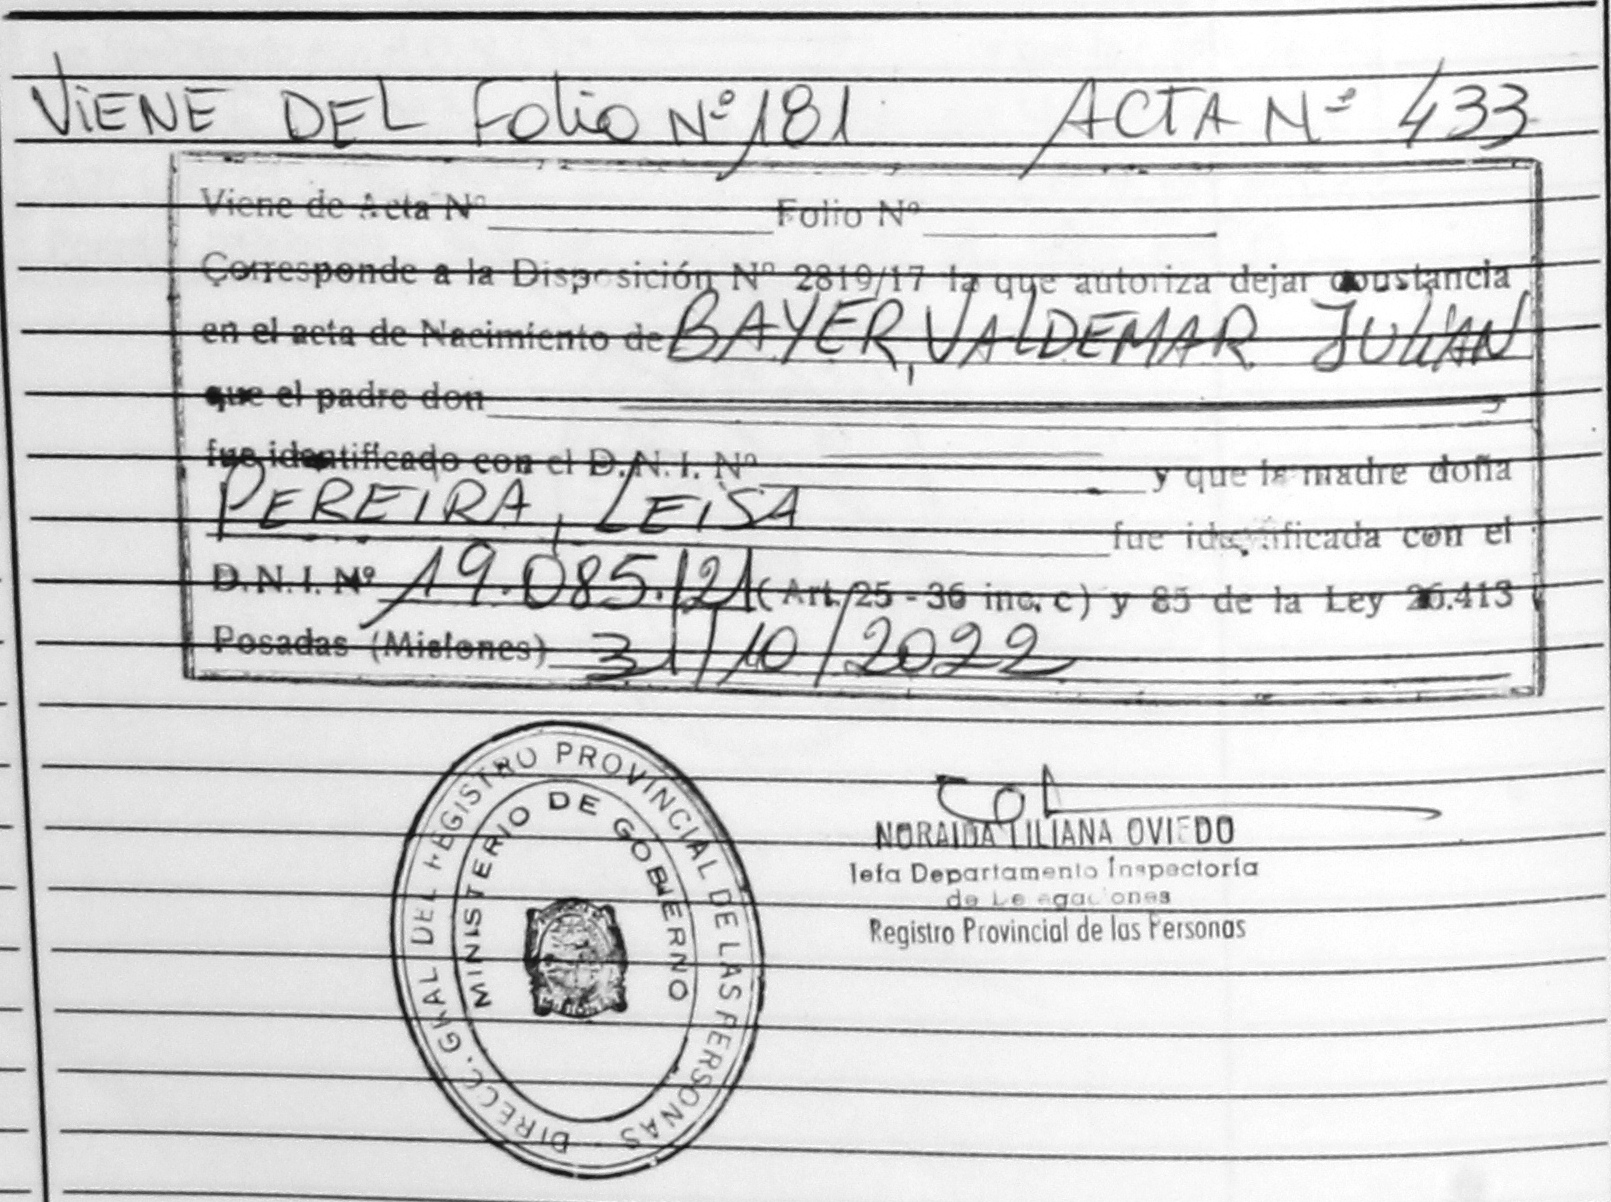 VIENE DEL Folio Nº 181 ACTA Nº 433
Viene de Acta Nº Folio Nº
Corresponde a la Disposición Nº 2819/17 la que autoriza dejar constancia
en el acta de Nacimiento de BAYER, VALDEMAR JULIAN
que el padre don
fue identificado con el D.N.I. Nº y que la madre doña
PEREIRA, LEISA fue identificada con el
D.N.I. Nº 19.085.121 (Art. 25 - 36 inc. c) y 85 de la Ley 26.413
Posadas (Misiones) 31/10/2022
DIRECC. GRAL DEL REGISTRO PROVINCIAL DE LAS PERSONAS
MINISTERIO DE GOBIERNO
NORAIDA LILIANA OVIEDO
Jefa Departamento Inspectoría
de Delegaciones
Registro Provincial de las Personas